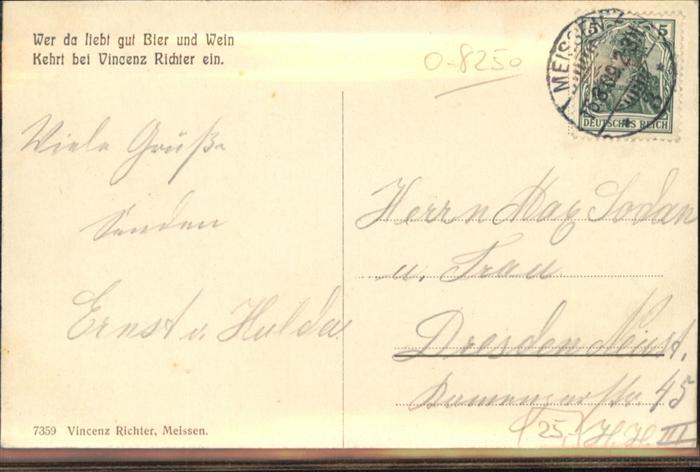 Wer da liebt gut Bier und Wein
Kehrt bei Vincenz Richter ein.
0-8250
MEISSEN
5 5
DEUTSCHES REICH
Viele Grüße
senden
Ernst u. Hulda
Herrn Max
u. Frau
Dresden Neust.
45
25.
H. H. III
7359 Vincenz Richter, Meissen.